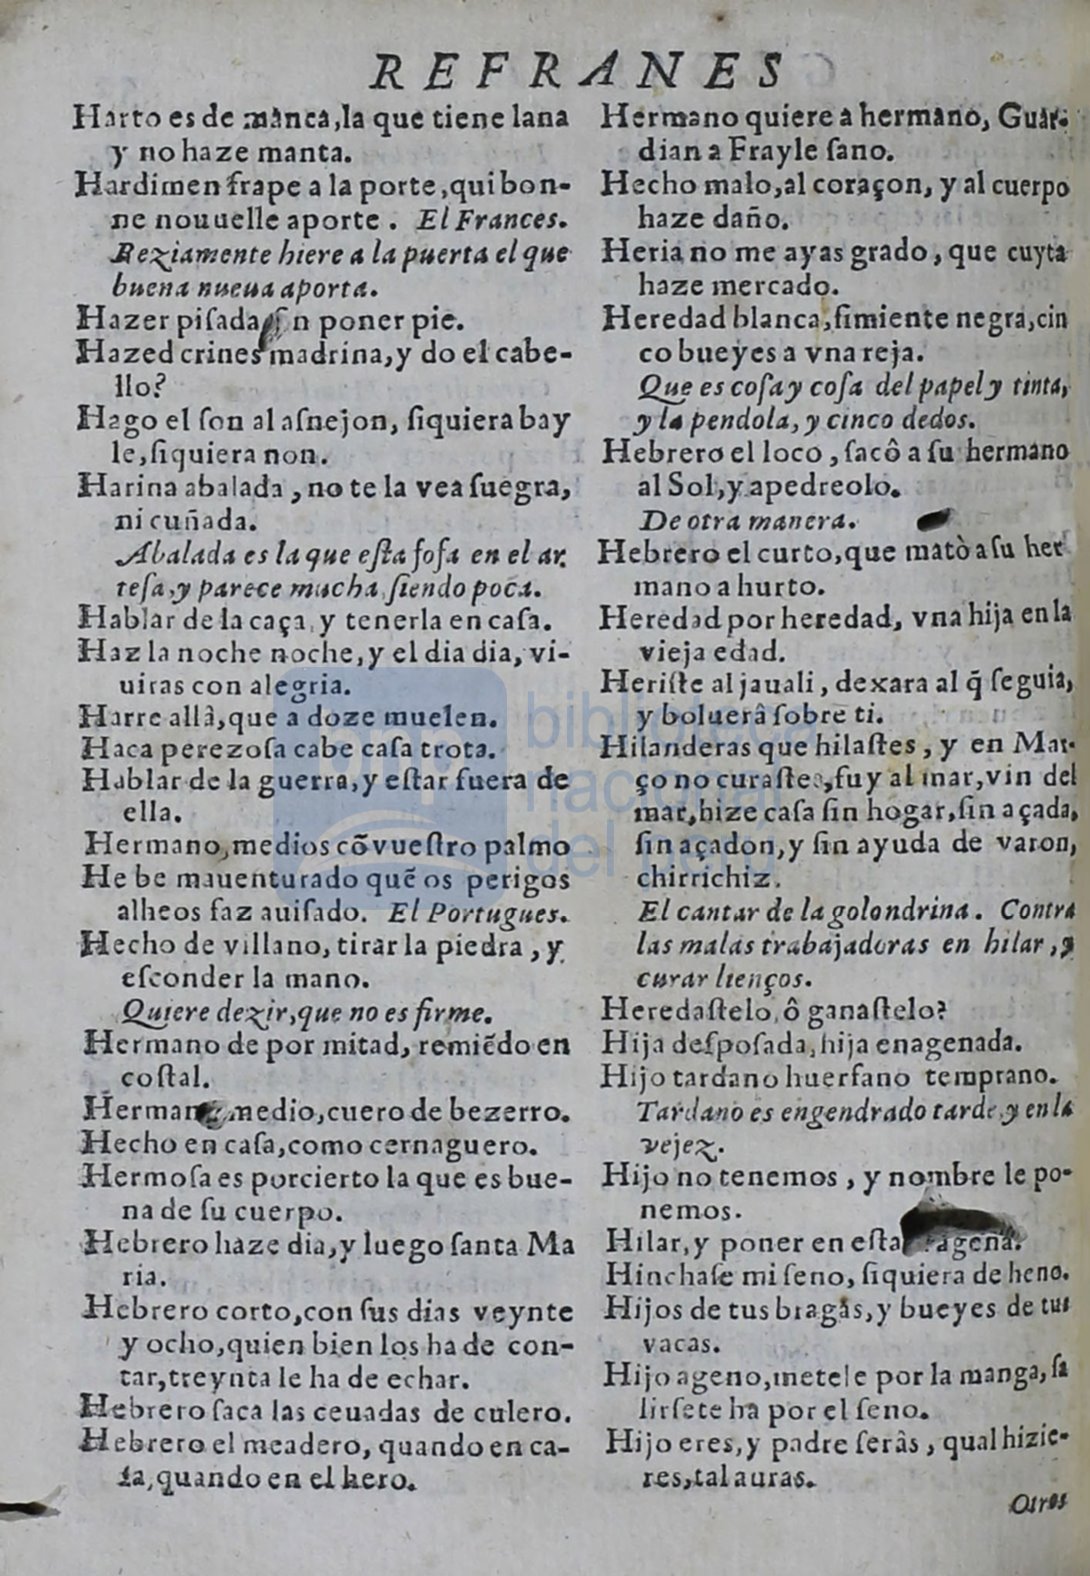 REFRANES
Harto es de manca, la que tiene lana
y no haze manta.
Hardimen frape a la porte, qui bon-
ne nouuelle aporte. El Frances.
Reziamente hiere a la puerta el que
buena nueua aporta.
Hazer piſada n poner pie.
Hazed crines madrina, y do el cabe-
llo?
Hago el ſon al aſnejon, ſiquiera bay
le, ſiquiera non.
Harina abalada, no te la vea ſuegra,
ni cuñada.
Abalada es la que eſta fofa en el ar
teſa, y parece mucha ſiendo poca.
Hablar de la caça, y tenerla en caſa.
Haz la noche noche, y el dia dia, vi-
uiras con alegria.
Harre allâ, que a doze muelen.
Haca perezoſa cabe caſa trota.
Hablar de la guerra, y eſtar fuera de
ella.
Hermano, medios cõ vueſtro palmo
He be mauenturado quẽ os perigos
alheos faz auiſado. El Portugues.
Hecho de villano, tirar la piedra, y
eſconder la mano.
Quiere dezir, que no es firme.
Hermano de por mitad, remiẽdo en
coſtal.
medio, cuero de bezerro.
Hecho en caſa, como cernaguero.
Hermoſa es por cierto la que es bue-
na de ſu cuerpo.
Hebrero haze dia, y luego ſanta Ma
ria.
Hebrero corto, con ſus dias veynte
y ocho, quien bien los ha de con-
tar, treynta le ha de echar.
Hebrero ſaca las ceuadas de culero.
Hebrero el meadero, quando en ca-
ſa, quando en el hero.
Hermano quiere a hermano, Guar-
dian a Frayle ſano.
Hecho malo, al coraçon, y al cuerpo
haze daño.
Heria no me ayas grado, que cuyta
haze mercado.
Heredad blanca, ſimiente negra, cin
co bueyes a vna reja.
Que es coſa y coſa del papel y tinta,
y la pendola, y cinco dedos.
Hebrero el loco, ſacô a ſu hermano
al Sol, y apedreolo.
De otra manera.
Hebrero el curto, que matò a ſu her
mano a hurto.
Heredad por heredad, vna hija en la
vieja edad.
Heriſte al jauali, dexara al q̃ ſeguia,
y boluerâ ſobre ti.
Hilanderas que hilaſtes, y en Mar-
ço no curaſtes, fuy al mar, vin del
mar, hize caſa ſin hogar, ſin açada,
ſin açadon, y ſin ayuda de varon,
chirrichiz.
El cantar de la golondrina. Contra
las malas trabajadoras en hilar, y
curar lienços.
Heredaſtelo, ô ganaſtelo?
Hija deſpoſada, hija enagenada.
Hijo tardano huerfano temprano.
Tardano es engendrado tarde, y en la
vejez.
Hijo no tenemos, y nombre le po-
nemos.
Hilar, y poner en eſta
Hinchaſe mi ſeno, ſiquiera de heno.
Hijos de tus bragas, y bueyes de tus
vacas.
Hijo ageno, metele por la manga, ſa
lirſete ha por el ſeno.
Hijo eres, y padre ſerâs, qual hizie-
res, tal auras.
Otros
bnp
biblioteca
nacional
del perú